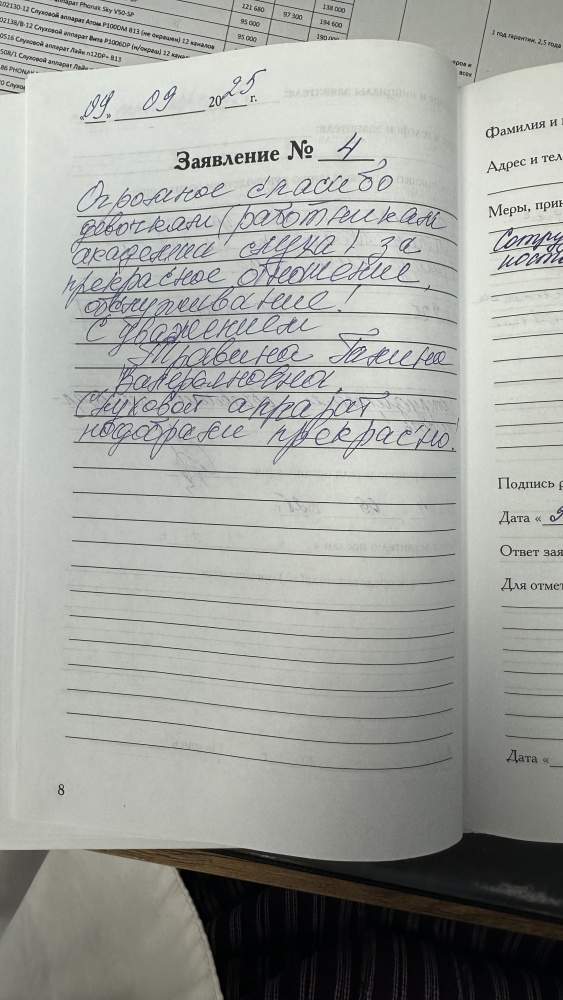 аппарат Phonak Sky V50-SP
102130-12 Слуховой аппарат Атом P100DM B13 (не окрашен) 12 каналов
02138/B-12 Слуховой аппарат Вита P1006DP (н/окраш) 12 кана
0516 Слуховой аппарат Лайн n12DP+ B13
508/1 Слуховой аппарат Лайн
86 PHONAK
0 Слухо
121 680
95 000
95 000
97 300
138 000
194 600
190 000
1 год гарантии, 2,5 года
всех
«09» 09 2025 г.
Заявление № 4
Огромное спасибо
девочкам (работникам
академии слуха) за
прекрасное отношение,
обслуживание!
С уважением
Травина Галина
Валерьяновна.
Слуховой аппарат
подобрали прекрасно!
8
Фамилия и
Адрес и тел
Меры, прин
Сотру
ность
Подпись р
Дата «
Ответ зая
Для отмет
Дата «